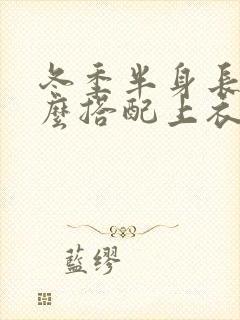 冬季半身長
麼搭配上衣
藍缪